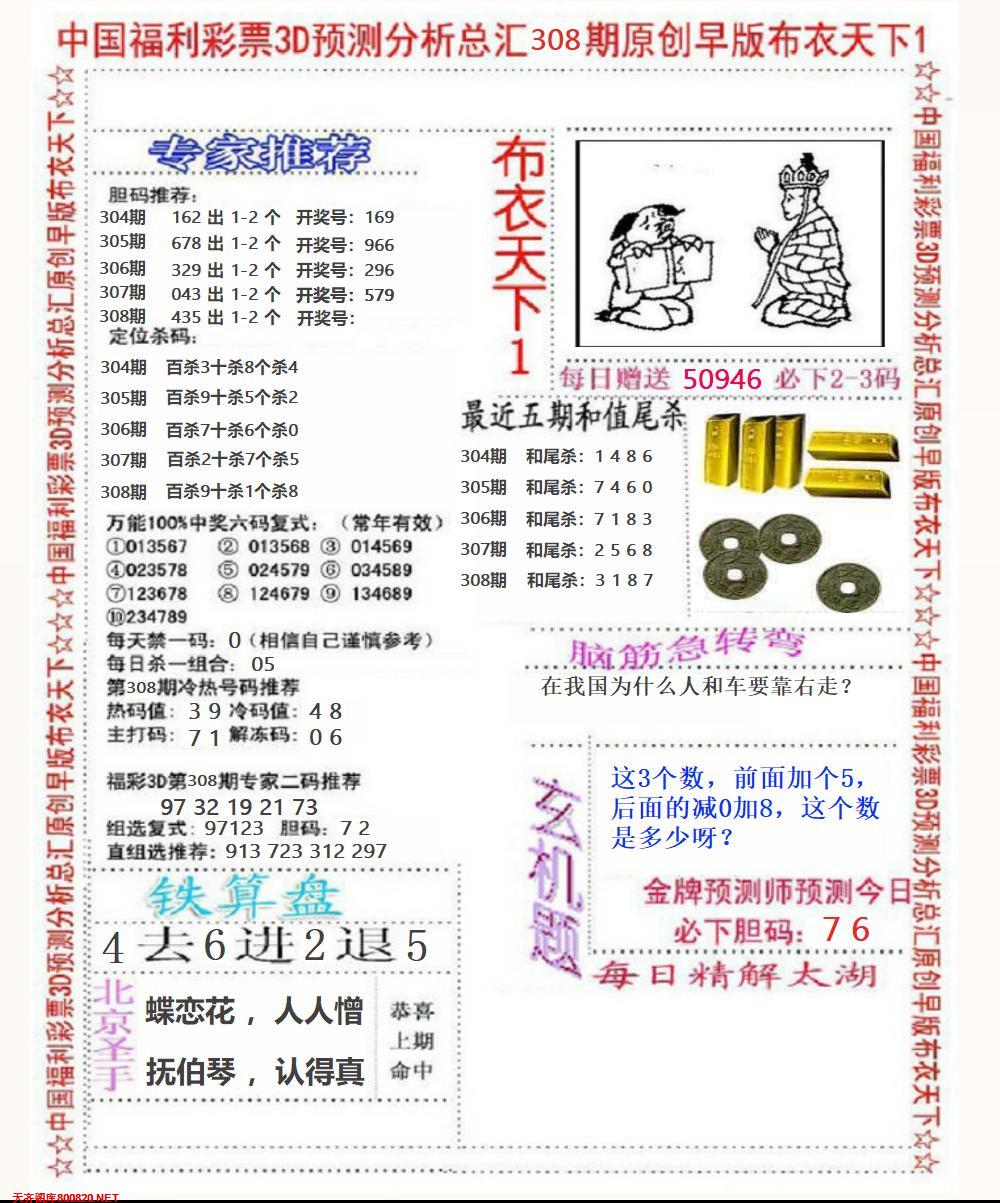 中国福利彩票3D预测分析总汇308期原创早版布衣天下1
☆☆中国福利彩票3D预测分析总汇原创早版布衣天下☆☆中国福利彩票3D预测分析总汇原创早版布衣天下☆☆
专家推荐
胆码推荐:
304期 162 出 1-2 个 开奖号: 169
305期 678 出 1-2 个 开奖号: 966
306期 329 出 1-2 个 开奖号: 296
307期 043 出 1-2 个 开奖号: 579
308期 435 出 1-2 个 开奖号:
定位杀码:
304期 百杀3十杀8个杀4
305期 百杀9十杀5个杀2
306期 百杀7十杀6个杀0
307期 百杀2十杀7个杀5
308期 百杀9十杀1个杀8
万能100%中奖六码复式: (常年有效)
①013567 ② 013568 ③ 014569
④023578 ⑤ 024579 ⑥ 034589
⑦123678 ⑧ 124679 ⑨ 134689
⑩234789
每天禁一码: 0(相信自己谨慎参考)
每日杀一组合: 05
第308期冷热号码推荐
热码值: 3 9 冷码值: 4 8
主打码: 7 1 解冻码: 0 6
福彩3D第308期专家二码推荐
97 32 19 21 73
组选复式: 97123 胆码: 7 2
直组选推荐: 913 723 312 297
铁算盘
4去6进2退5
北京圣手
蝶恋花,人人憎
抚伯琴,认得真
恭喜
上期
命中
布衣天下1
每日赠送 50946 必下2-3码
最近五期和值尾杀
304期 和尾杀: 1 4 8 6
305期 和尾杀: 7 4 6 0
306期 和尾杀: 7 1 8 3
307期 和尾杀: 2 5 6 8
308期 和尾杀: 3 1 8 7
脑筋急转弯
在我国为什么人和车要靠右走?
玄机题
这3个数,前面加个5,
后面的减0加8,这个数
是多少呀?
金牌预测师预测今日
必下胆码: 7 6
每日精解太湖
☆☆中国福利彩票3D预测分析总汇原创早版布衣天下☆☆中国福利彩票3D预测分析总汇原创早版布衣天下☆☆
天齐图库800820.NET